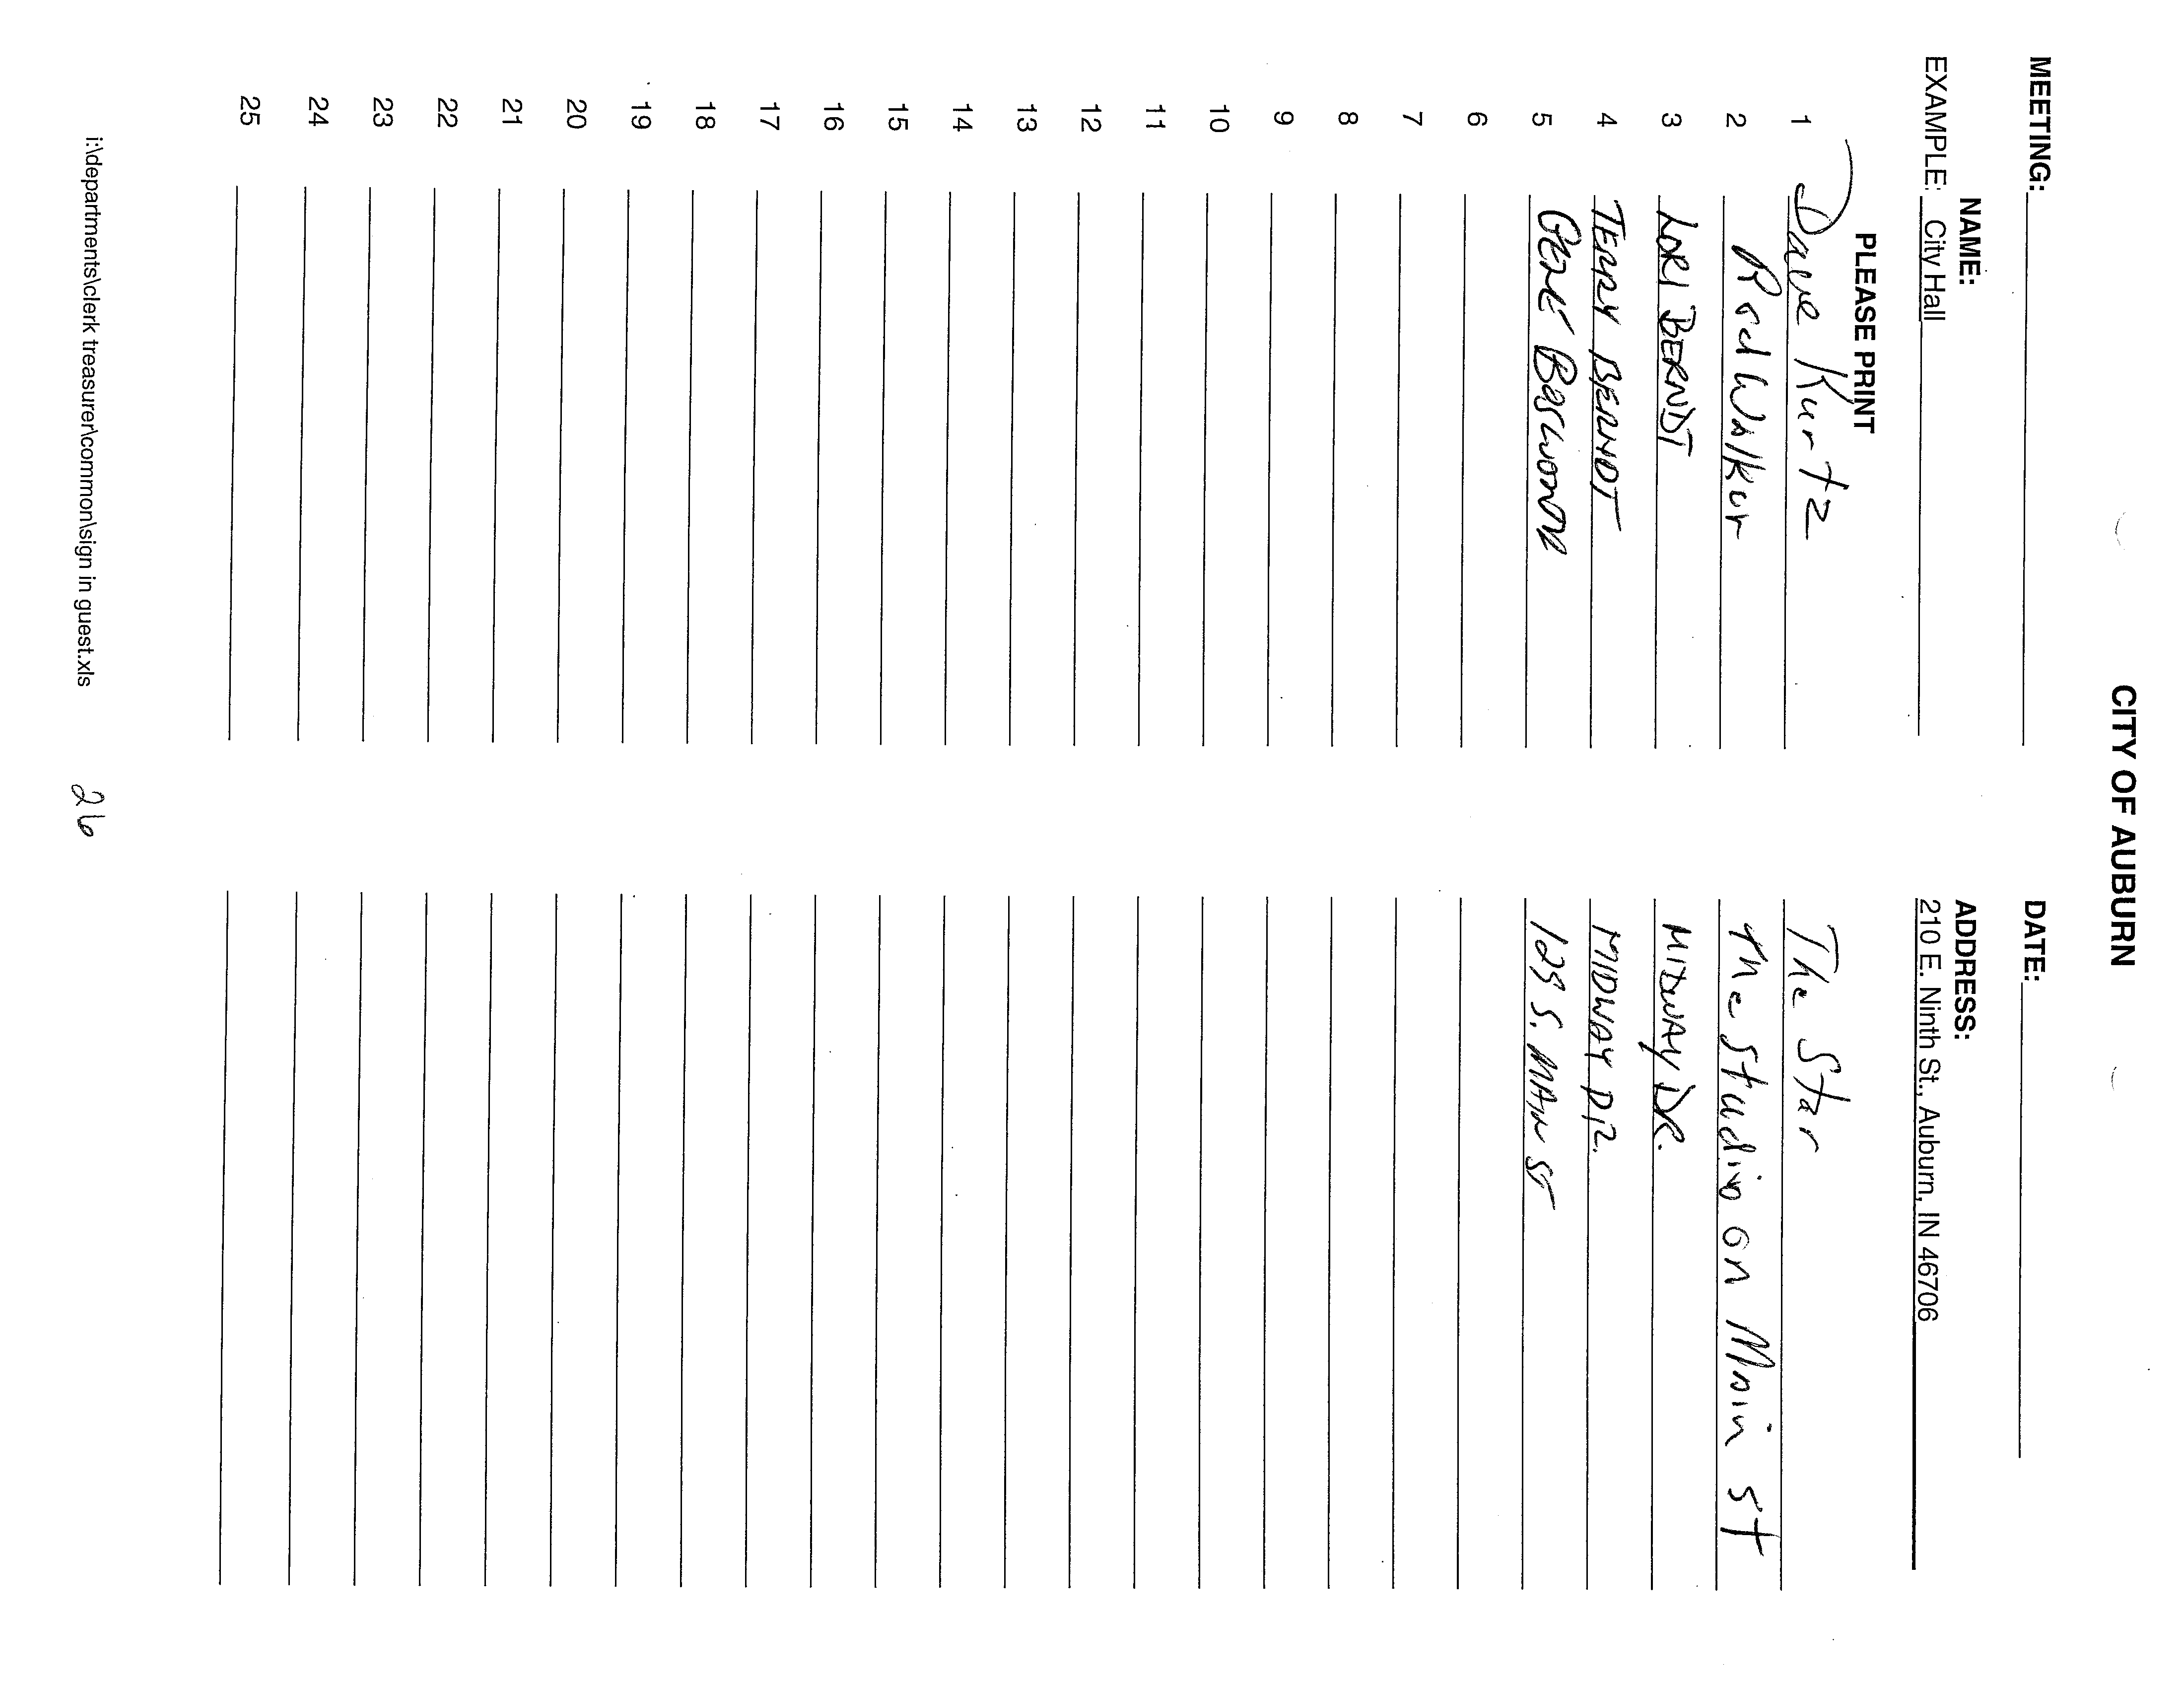 CITY OF AUBURN
MEETING: DATE:
NAME: ADDRESS:
EXAMPLE: City Hall 210 E. Ninth St., Auburn, IN 46706
PLEASE PRINT
1 Dave Kurtz The Star
2 Rod Walker The Studio on Main St
3 LORI BERNDT MIDWAY DR.
4 TERRY BERNDT MIDWAY DR.
5 129 S. MAIN ST
6
7
8
9
10
11
12
13
14
15
16
17
18
19
20
21
22
23
24
25
i:\departments\clerk treasurer\common\sign in guest.xls 26